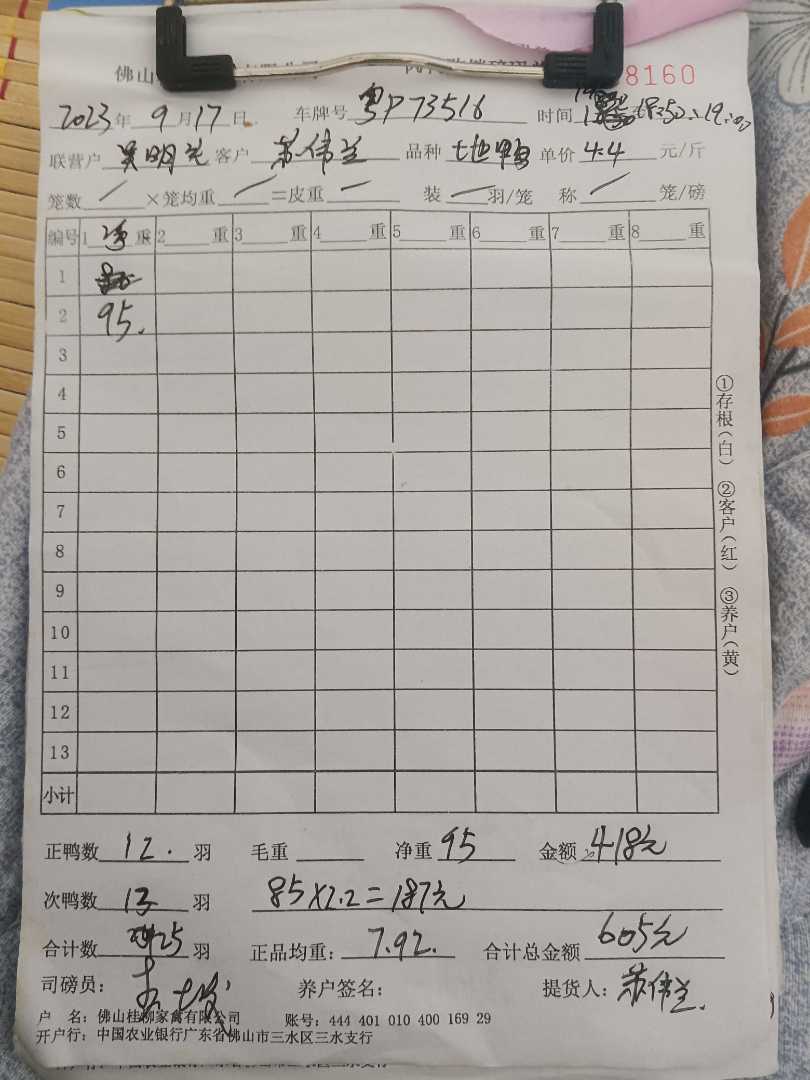 佛山 8160
2023年 9月17日 车牌号 粤P73516 时间 18:50-19:00
联营户 吴明光 客户 苏伟兰 品种 土地鸭 单价 4.4 元/斤
笼数 / ×笼均重 / =皮重 — 装 — 羽/笼 称 / 笼/磅
编号 1 净 重 2 重 3 重 4 重 5 重 6 重 7 重 8 重
1
2 95.
3
4
5
6
7
8
9
10
11
12
13
小计
①存根(白) ②客户(红) ③养户(黄)
正鸭数 12. 羽 毛重 净重 95 金额 418元
次鸭数 13 羽 85×2.2=187元
合计数 25 羽 正品均重: 7.92. 合计总金额 605元
司磅员: 养户签名: 提货人: 苏伟兰.
户 名: 佛山桂柳家禽有限公司 账号: 444 401 010 400 169 29
开户行: 中国农业银行广东省佛山市三水区三水支行